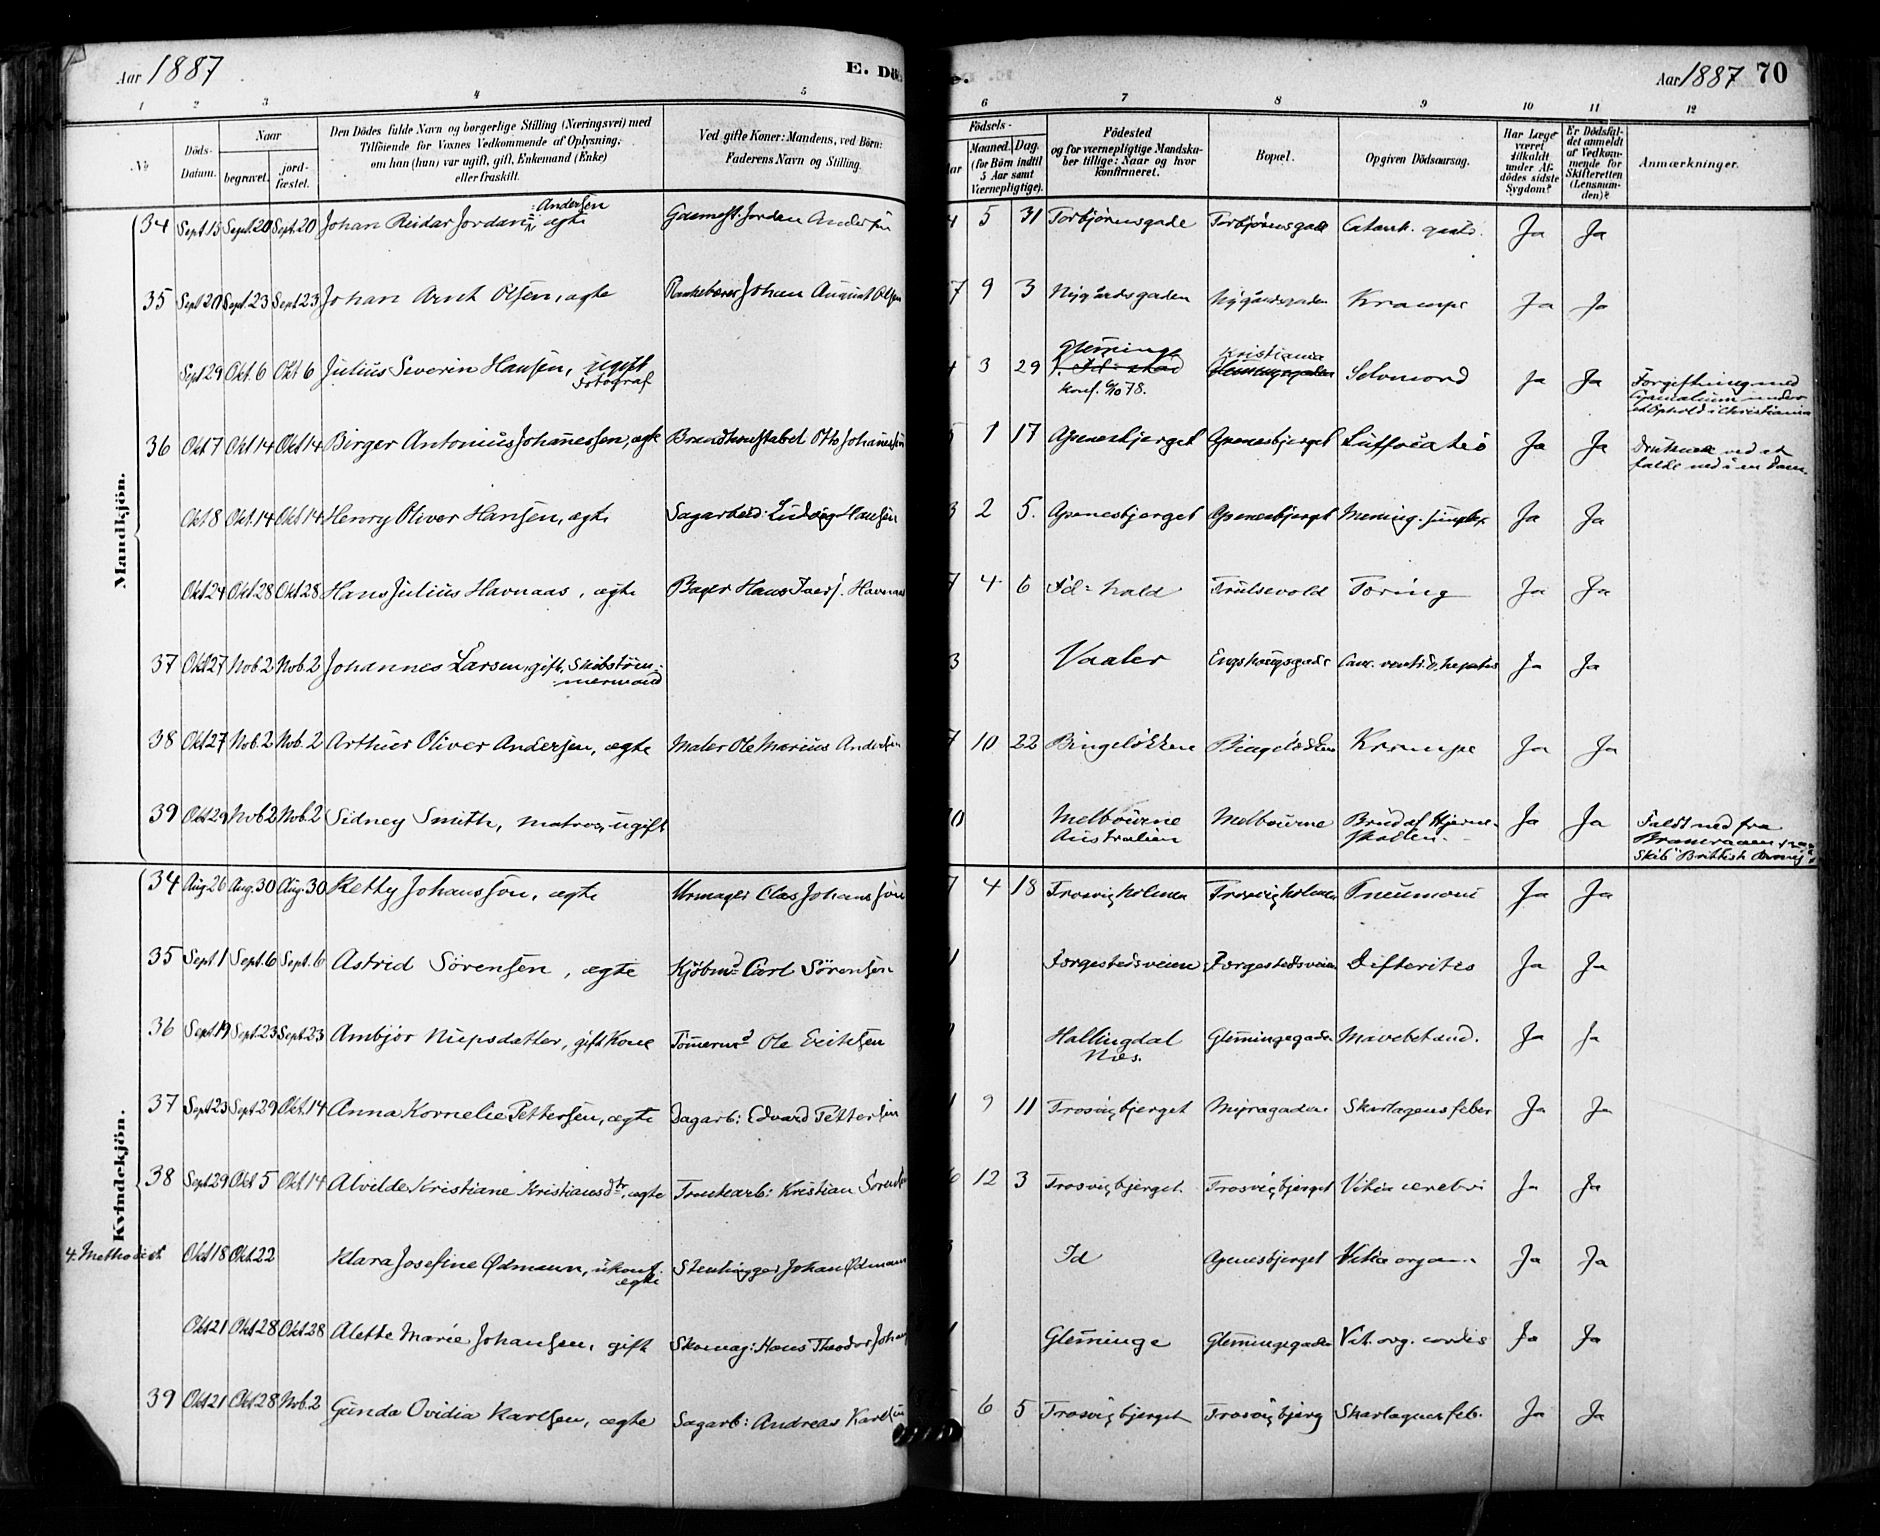 Aar 1887 E. Dö
Aar 1887 70
1 2 3 4 5 6 7 8 9 10 11 12
No
Döds-
Datum.
Naar
begravet.
jord-
fæstet.
Den Dödes fulde Navn og borgerlige Stilling (Næringsvei) med
Tilföiende for Voxnes Vedkommende af Oplysning,
om han (hun) var ugift, gift, Enkemand (Enke)
eller fraskilt.
Ved gifte Koner: Mandens, ved Börn:
Faderens Navn og Stilling.
Födsels-
Maaned. Dag.
(for Börn indtil
5 Aar samt
Værnepligtige).
Födested
og for værnepligtige Mandska-
ber tillige: Naar og hvor
konfirmeret.
Bopæl.
Opgiven Dödsaarsag.
Har Læge
været
tilkaldt
under Af-
dödes sidste
Sygdom?
Er Dödsfal-
det anmeldt
af Vedkom-
mende for
Skifteretten
(Lensman-
den)?
Anmærkninger.
Mandkjön.
34 Sept 15 Sept 20 Sept. 20 Johan Reidar Jordan Andersen ægte Jordan Andersen 4 5 31 Torbjørnsgade Torbjørnsgade Catarrh. Ja Ja
35 Sept 20 Sept. 23 Sept 23 Johan Arnt Olsen, ægte Johan August Olsen 7 9 3 Nygårdsgaden Nygårdsgaden Krampe Ja Ja
Sept 29 Okt. 6 Okt 6 Julius Severin Hansen, ugift Fotograf 4 3 29 Glemminge konf. 6/10 78. Kristiania Selvmord Ja Ja Forgiftning med
under
Ophold i Christiania
36 Okt 7 Okt 14 Okt 14 Birger Antonius Johannessen, ægte Brandkonstabel Otto Johannessen 5 1 17 Apenesbjerget Apenesbjerget Suffocatio Ja Ja Druknede ved at
falde ned i en Dam.
Okt 8 Okt. 14 Okt 14 Henry Oliver Hansen, ægte Sagarbeid: Ludvig Hansen 3 2 5. Apenesbjerget Apenesbjerget Mening. simplex Ja Ja
Okt 24 Okt 28 Okt 28 Hans Julius Havnaas, ægte Bager Hans Havnaas 7 4 6 Fd: hald Trulsevold Tæring Ja Ja
37 Okt 27 Nov. 2 Nov. 2 Johannes Larsen, gift, Skibstøm-
mermand 3 Vaaler Engehaugsgade Canc. ventr. & hepatis Ja Ja
38 Okt 27 Nov. 2 Nov. 2 Arthur Oliver Andersen, ægte Maler Ole Marius Andersen 7 10 22 Bingeløkken Bingeløkken Krampe Ja Ja
39 Okt 29 Nov 2 Nov. 2 Sidney Smith, matros, ugift 0 Melbourne
Australien Melbourne Brud af Hjerne-
skallen. Ja Ja Faldt ned fra
Skib "British Army"
Kvindekjön.
34 Aug. 26 Aug. 30 Aug. 30 Ketty Johansson, ægte Urmager Claes Johansson 7 4 18 Trosvigholmen Trosvigholmen Pneumoni Ja Ja
35 Sept 1 Sept. 6 Sept. 6 Astrid Sørensen, ægte Kjøbmd Carl Sørensen 1 Færgestedsveien Færgestedsveien Difteritis Ja Ja
36 Sept. 19 Sept. 23 Sept. 23 Ambjør Niepsdatter, gift Kone Tømermd Ole Eriksen Hallingdal
Næs. Glemmingegaden Mavebetænd. Ja Ja
37 Sept 23 Sept 29 Okt. 14 Anna Kornelie Pettersen, ægte Dagarb: Edvard Pettersen 1 9 11 Trosvigbjerget Skarlagensfeber Ja Ja
38 Sept 29 Okt 5 Okt 14 Alvilde Kristiane Kristiansdtr, ægte Kristian Sørensen 6 12 3 Trosvigbjerget. Trosvigbjerget Vitia cerebri Ja Ja
4. Methodist Okt 18 Okt. 22 Klara Josefine Ødmann, ukonf.
ægte Stenhugger Johan Ødmann 3 Id Apenesbjerget Vitia organ. Ja Ja
Okt 21 Okt 28 Okt 28 Alette Marie Johansen, gift Skomag: Hans Theodor Johan 1 Glemminge Glemmingegaden Vit. org. cordis Ja Ja
39 Okt 21 Okt 28 Nov. 2 Gunda Ovidia Karlsen, ægte Sagarb: Andreas Karlsen 6 5 Trosvigbjerget Trosvigbjerg Skarlagensfeb. Ja Ja